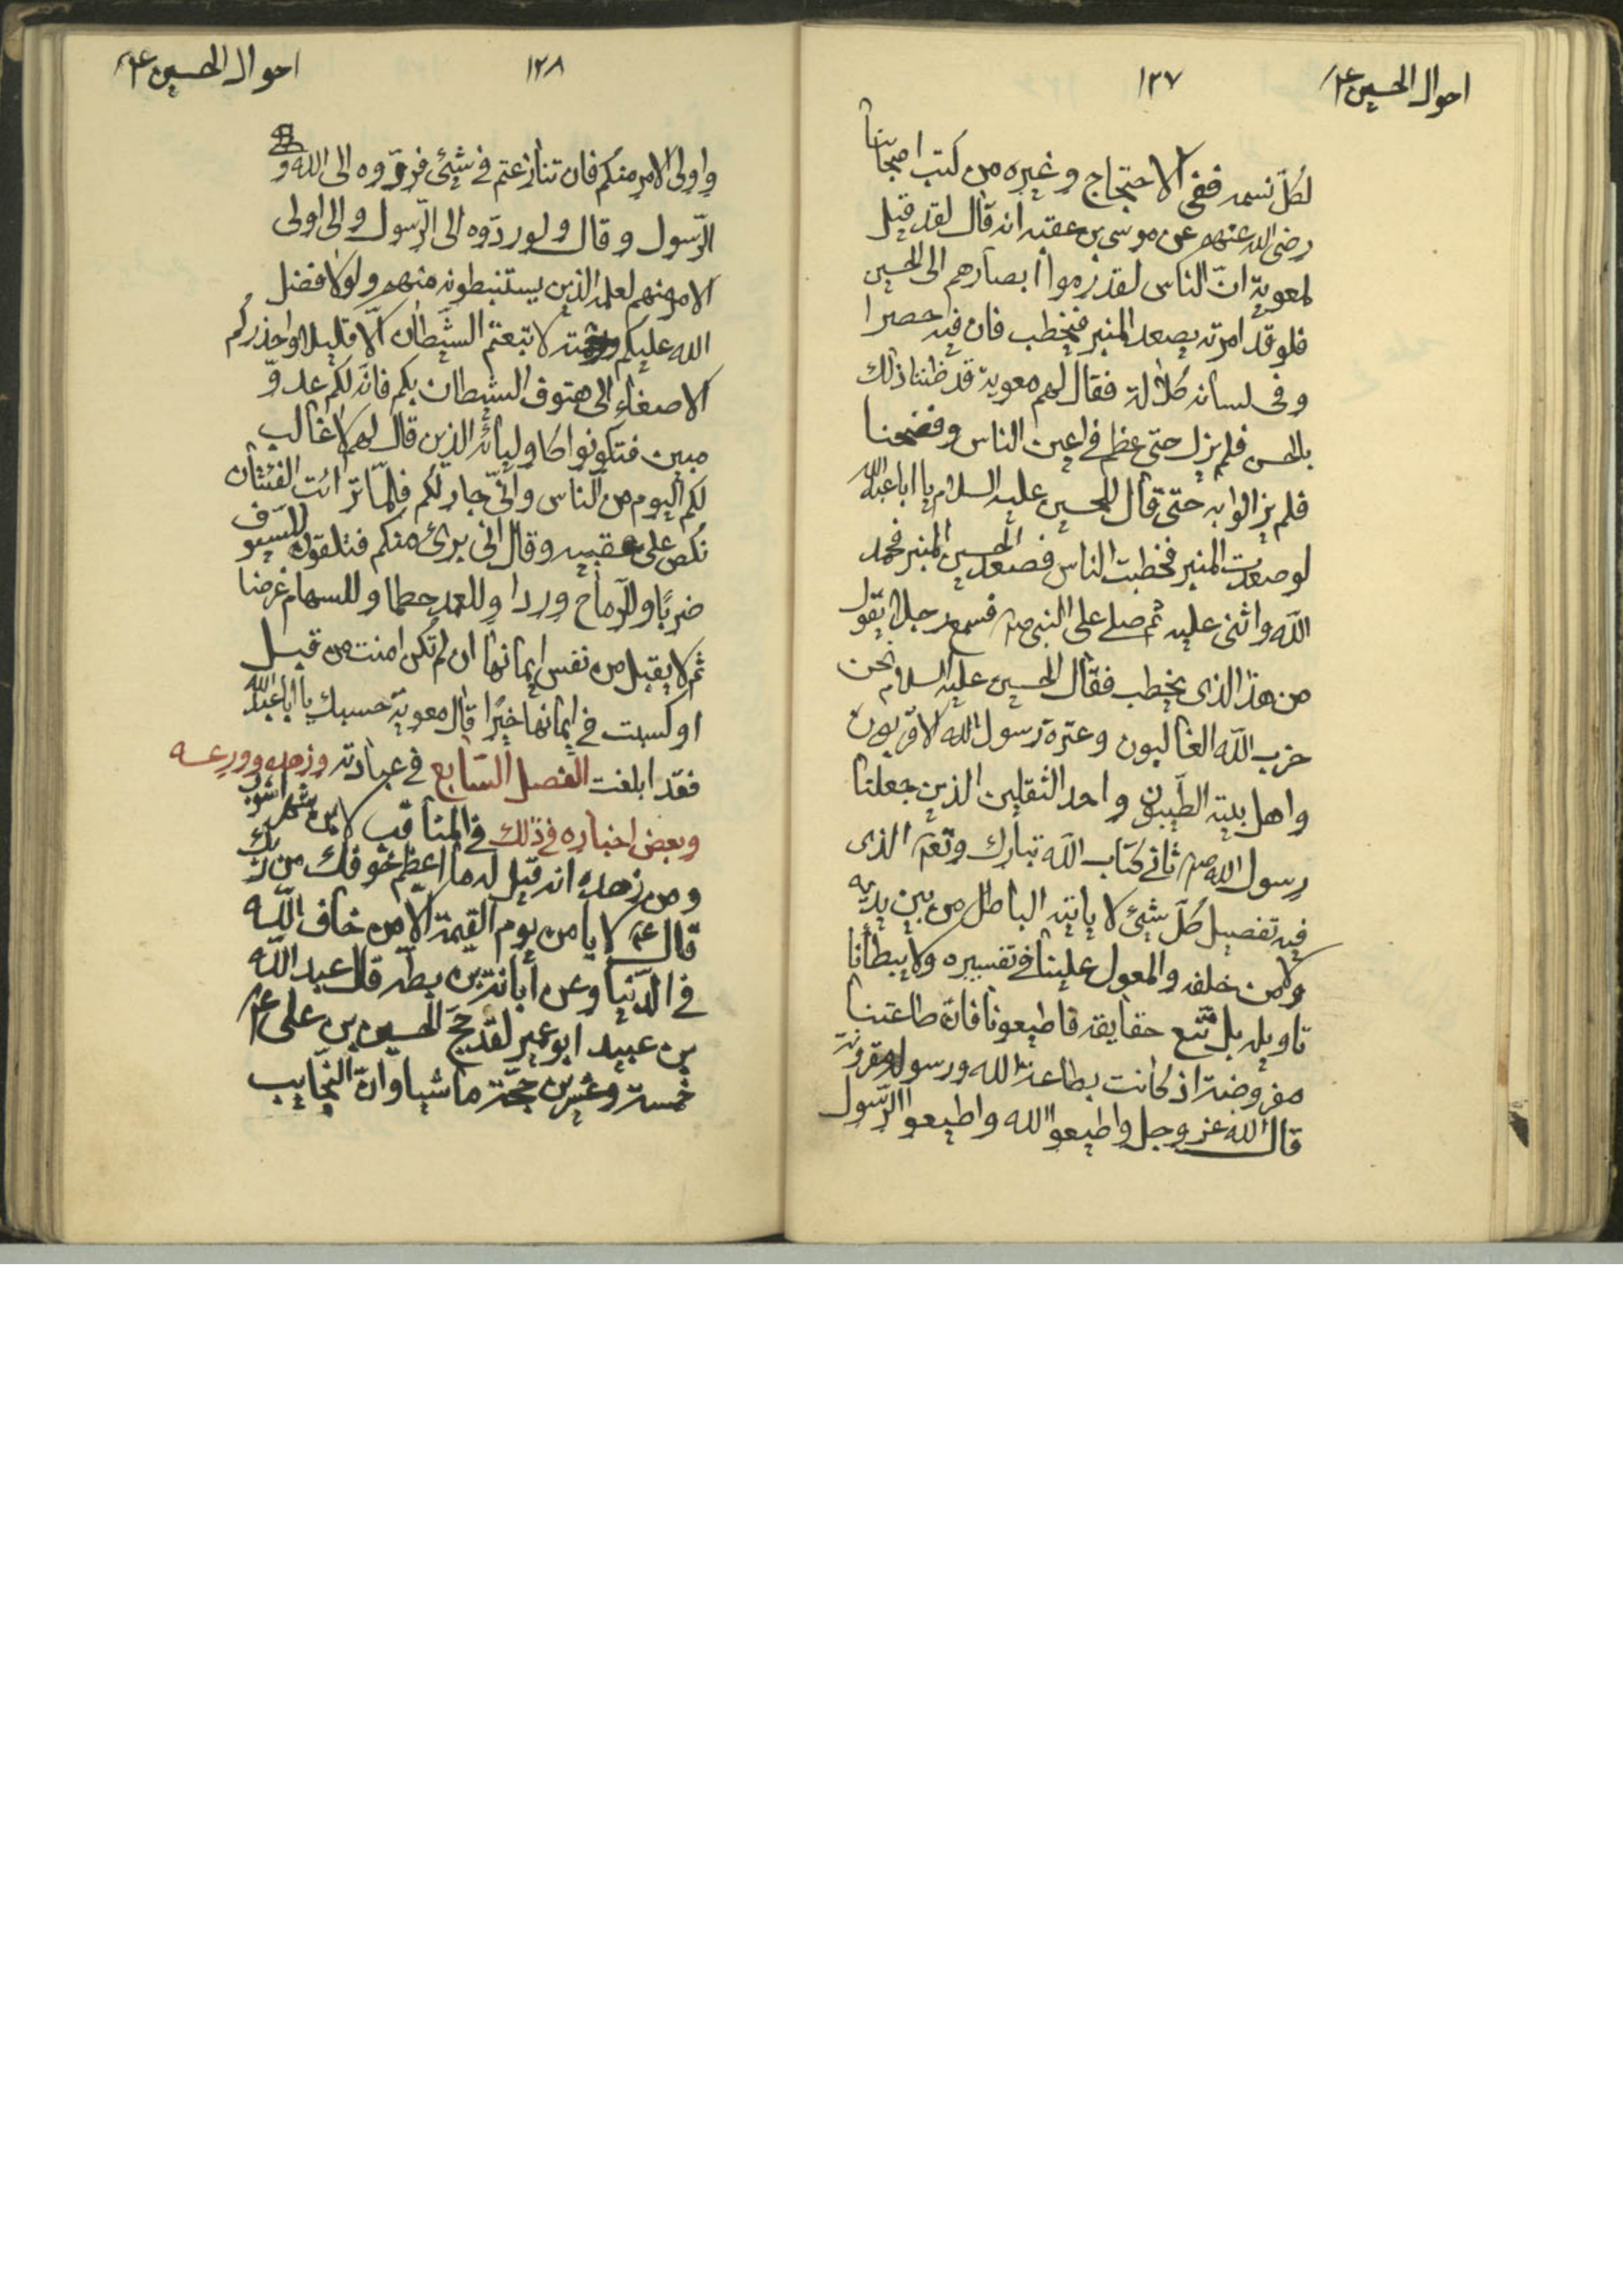 احوال الحسين ع
١٢٧
لكل نسمه ففى الاحتجاج وغيره من كتب اصحابنا
رضى الله عنهم عن موسى بن عقبه انه قال لقد قيل
لمعوية انّ الناس لقد رموا ابصارهم الى الحسين
فلو قد امرته يصعد المنبر فيخطب فان فيه حصرا
وفى لسانه كلالة فقال لهم معوية قد ظننا ذلك
بالحسن فلم يزل حتى عظم فى اعين الناس وفضحنا
فلم يزالوا به حتّى قال للحسين عليه السلام يا ابا عبد الله
لو صعدت المنبر فخطبت الناس فصعد الحسين المنبر فحمد
الله واثنى عليه ثم صلى على النبى ص فسمع رجلا يقول
من هذا الذى يخطب فقال الحسين عليه السلام نحن
حزب الله الغالبون وعترة رسول الله الاقربون
واهل بيته الطيبون واحد الثقلين الذين جعلنا
رسول الله ص ثانى كتاب الله تبارك وتعم الذى
فيه تفصيل كلّ شيئ لا ياتيه الباطل من بين يديه
ولا من خلفه والمعول علينا فى تفسيره ولا يبطأنا
تاويله بل نتبع حقايقه فاطيعونا فانّ طاعتنا
مفروضة اذ كانت بطاعة الله ورسوله مقرونة
قال الله عز وجل واطيعوا الله واطيعوا الرّسول
احوال الحسين ع
١٢٨
واولى الامر منكم فان تنازعتم فى شيئ فردّوه الى الله و
الرّسول وقال ولو ردّوه الى الرّسول والى اولى
الامر منهم لعلمه الذين يستنبطونه منهم ولولا فضل
الله عليكم ورحمته لا تبعتم الشيطان الّا قليلا واحذركم
الاصغاء الى هتوف الشيطان بكم فانّه لكم عدوّ
مبين فتكونوا كاوليائه الذين قال لهم لا غالب
لكم اليوم من الناس وانّى جار لكم فلمّا ترائت الفئتان
نكص على عقبيه وقال انى برئ منكم فتلقون للسيوف
ضربًا وللرّماح وردا وللعمد حطما وللسهام غرضا
ثم لا يقبل من نفس ايمانها ان لم تكن امنت من قبل
او كسبت فى ايمانها خيرًا قال معوية حسبك يا ابا عبد الله
فقد ابلغت الفصل السّابع فى عبادته وزهده وورعه
وبعض اخباره فى ذلك فى المناقب لابن شهر اشوب
ومن زهده انه قيل له ما اعظم خوفك من ربك
قال ع لا يامن يوم القيمة الّا من خاف الله
فى الدّنيا وعن ابانة بن بطه قال عبد الله
بن عبيد ابو عمير لقد حجّ الحسين بن على ع
خمسة وعشرين حجّة ماشيا وانّ النجايب